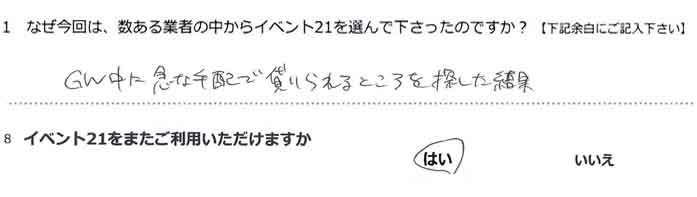 1 なぜ今回は、数ある業者の中からイベント21を選んで下さったのですか？【下記余白にご記入下さい】
GW中に急な手配で借りられるところを探した結果
8 イベント21をまたご利用いただけますか
はい いいえ